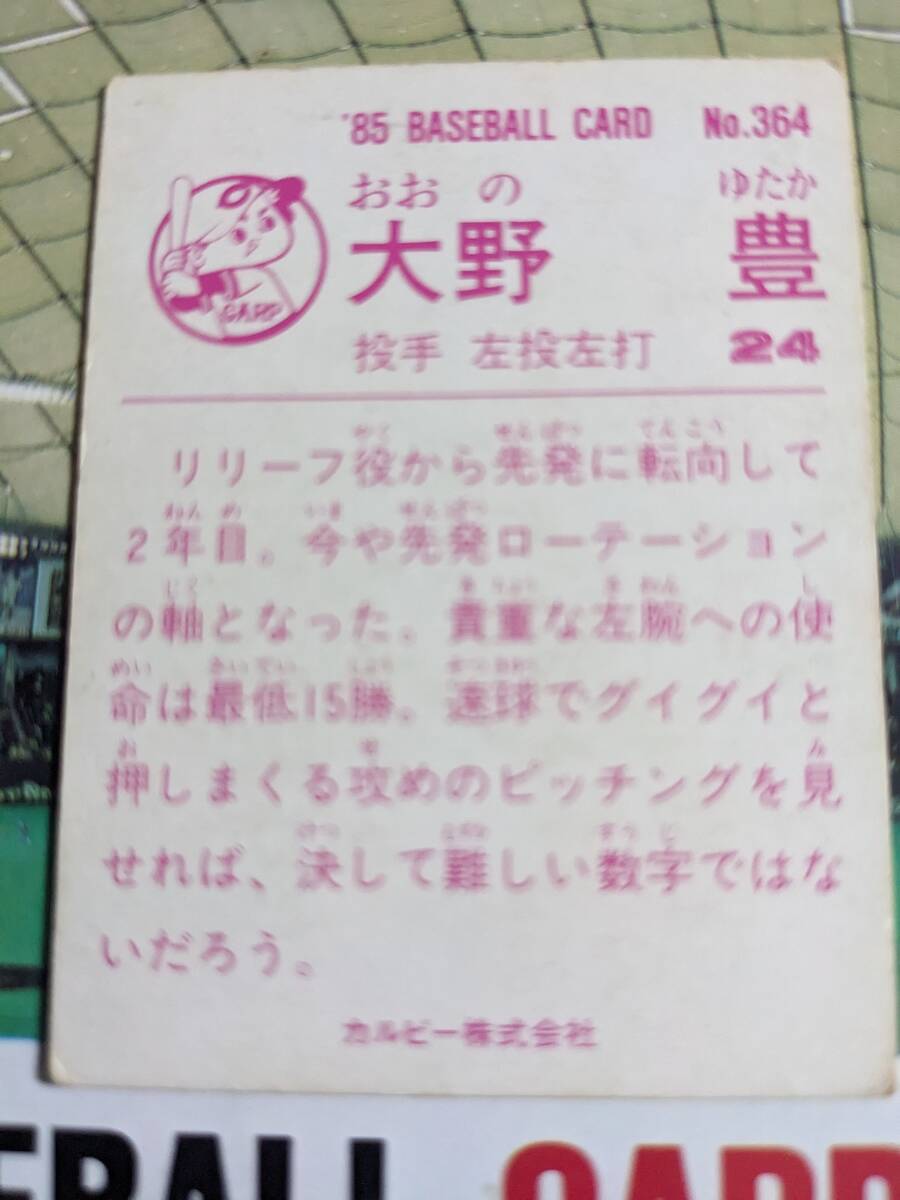 '85 BASEBALL CARD No.364
おおの ゆたか
大野 豊
CARP
投手 左投左打 24
リリーフ役から先発に転向して
2年目。今や先発ローテーション
の軸となった。貴重な左腕への使
命は最低15勝。速球でグイグイと
押しまくる攻めのピッチングを見
せれば、決して難しい数字ではな
いだろう。
カルビー株式会社
EBALL CARD